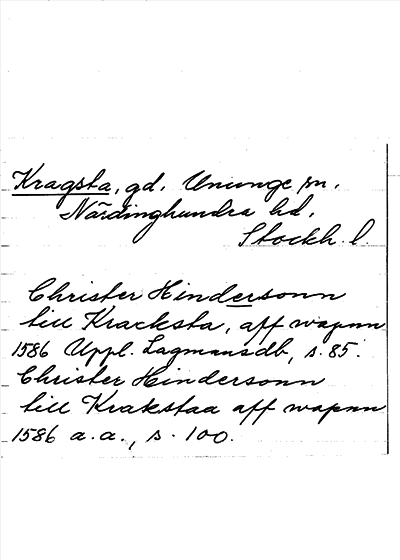 Kragsta, gd. Ununge sn.
Närdinghundra hd.
Stockh. l.
Christer Hindersonn
till Kracksta, aff wapnn
1586 Uppl. Lagmansdb, s. 85.
Christer Hindersonn
till Krakstaa aff wapnn
1586 a.a., s. 100.